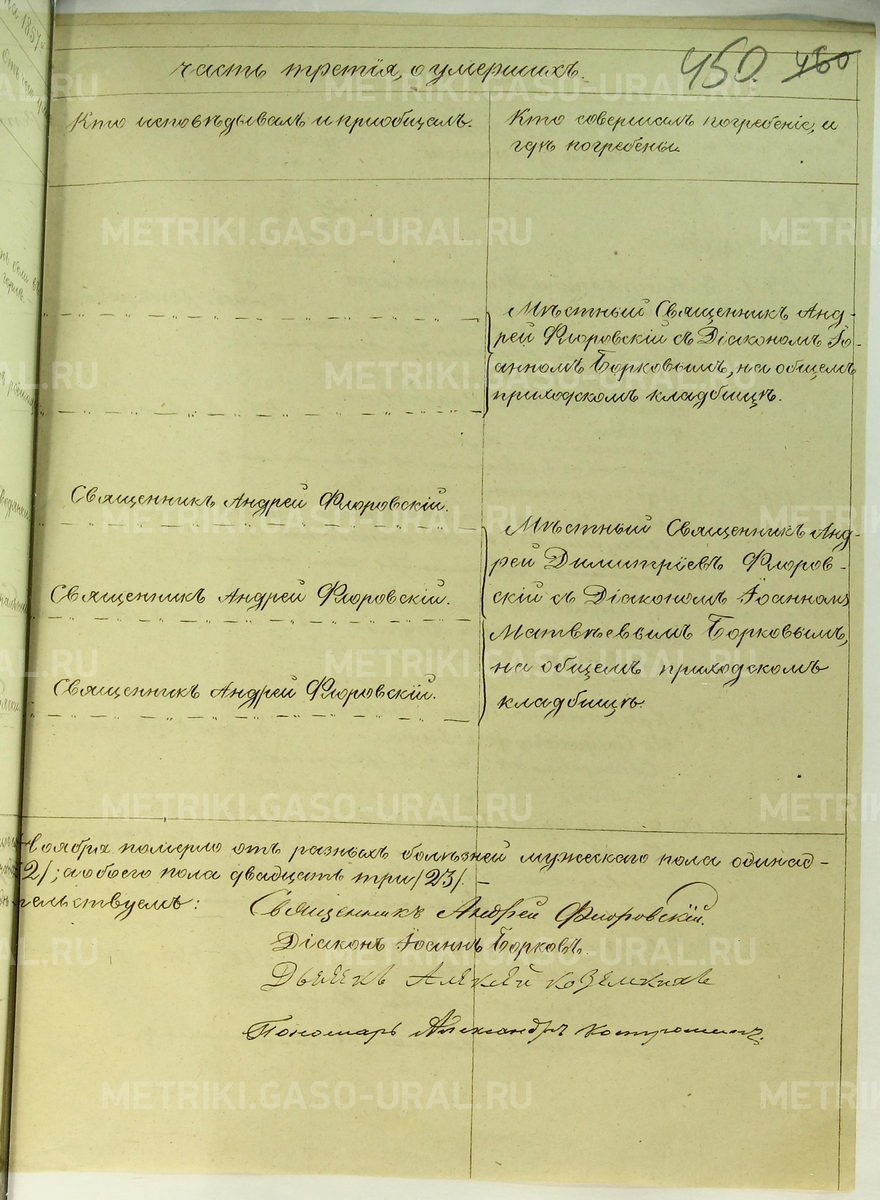 часть третія, о умершихъ.
450. 460
Кто исповѣдывалъ и пріобщалъ.
Кто совершалъ погребеніе, и
гдѣ погребены.
Мѣстный Священникъ Анд-
рей Флоровскій съ Діакономъ Іо-
анномъ Борковымъ, на общемъ
приходскомъ кладбищѣ.
Священникъ Андрей Флоровскій.
Священникъ Андрей Флоровскій.
Священникъ Андрей Флоровскій.
Мѣстный Священникъ Анд-
рей Димитріевъ Флоров-
скій съ Діакономъ Іоанномъ
Матвѣевымъ Борковымъ,
на общемъ приходскомъ
кладбищѣ.
Ноября померло отъ разныхъ болѣзней мужескаго пола одинад-
2/; а обоего пола двадцать три /23/. –
тельствуемъ:
Священникъ Андрей Флоровскій.
Діаконъ Іоаннъ Борковъ.
Дьячекъ Алексѣй
Пономарь Александръ Костроминъ.
METRIKI.GASO-URAL.RU